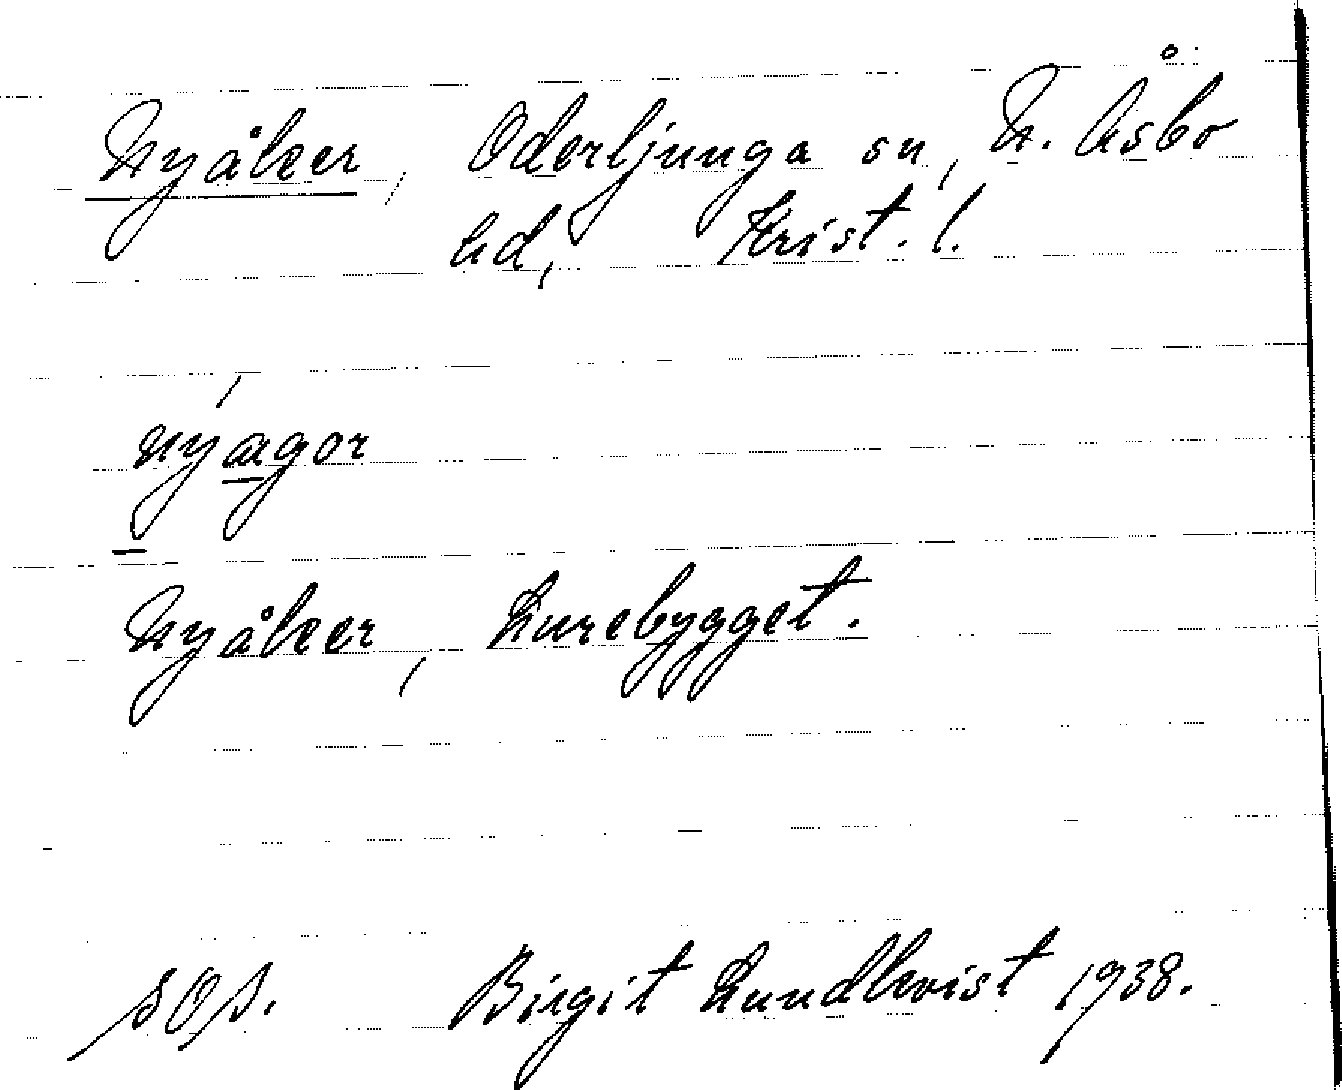 Nyåker, Oderljunga sn, N. Åsbo
hd, Krist. l.
nýagor
Nyåker, Lurebygget.
SOS. Birgit Lundkvist 1938.